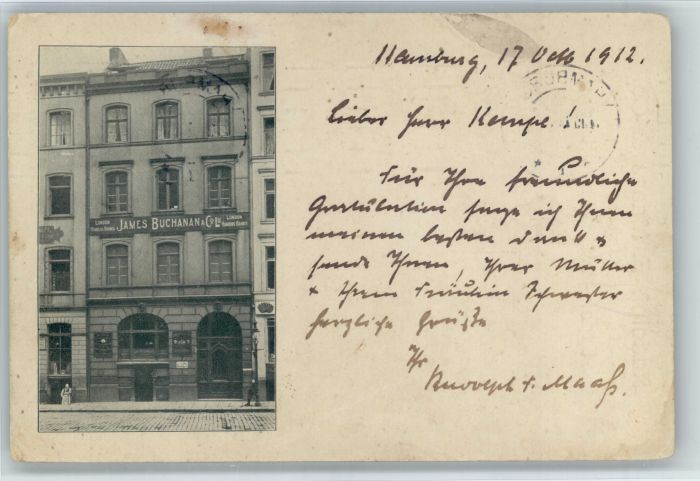 Hamburg, 17 Oct 1912.
Lieber Herr Kempe!
Für Ihre freundliche
Gratulation sage ich Ihnen
meinen besten Dank &
sende Ihnen, Ihrer Mutter
& Ihrem Fräulein Schwester
herzliche Grüße
Ihr
Rudolph S. Maaß.
LONDON
JAMES BUCHANAN & CO LTD
LONDON